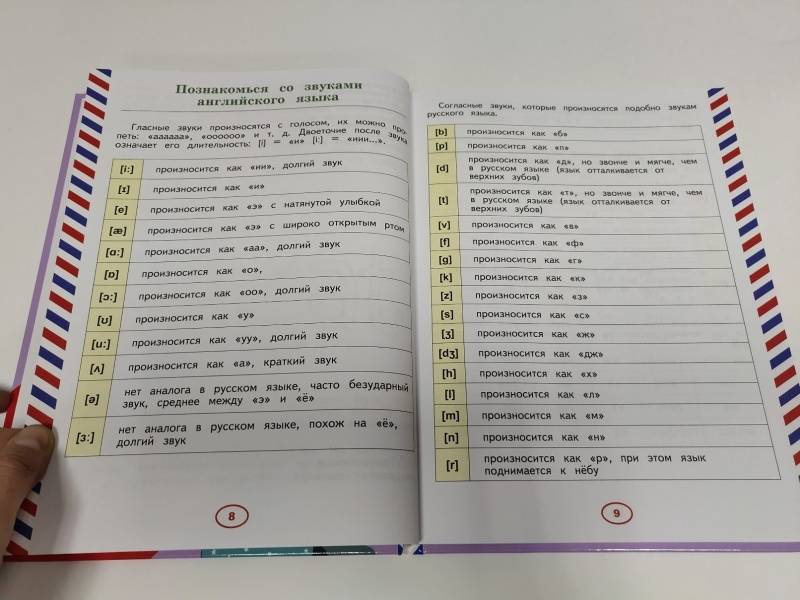 Познакомься со звуками
английского языка
Гласные звуки произносятся с голосом, их можно про-
петь: «аааааа», «оооооо» и т. д. Двоеточие после звука
означает его длительность: [i] = «и» [i:] = «иии...».
[i:] произносится как «ии», долгий звук
[ɪ] произносится как «и»
[e] произносится как «э» с натянутой улыбкой
[æ] произносится как «э» с широко открытым ртом
[ɑ:] произносится как «аа», долгий звук
[ɒ] произносится как «о»,
[ɔ:] произносится как «оо», долгий звук
[ʊ] произносится как «у»
[u:] произносится как «уу», долгий звук
[ʌ] произносится как «а», краткий звук
[ə] нет аналога в русском языке, часто безударный
звук, среднее между «э» и «ё»
[ɜ:] нет аналога в русском языке, похож на «ё»,
долгий звук
8
Согласные звуки, которые произносятся подобно звукам
русского языка.
[b] произносится как «б»
[p] произносится как «п»
[d] произносится как «д», но звонче и мягче, чем
в русском языке (язык отталкивается от
верхних зубов)
[t] произносится как «т», но звонче и мягче, чем
в русском языке (язык отталкивается от
верхних зубов)
[v] произносится как «в»
[f] произносится как «ф»
[g] произносится как «г»
[k] произносится как «к»
[z] произносится как «з»
[s] произносится как «с»
[ʒ] произносится как «ж»
[dʒ] произносится как «дж»
[h] произносится как «х»
[l] произносится как «л»
[m] произносится как «м»
[n] произносится как «н»
[r] произносится как «р», при этом язык
поднимается к нёбу
9